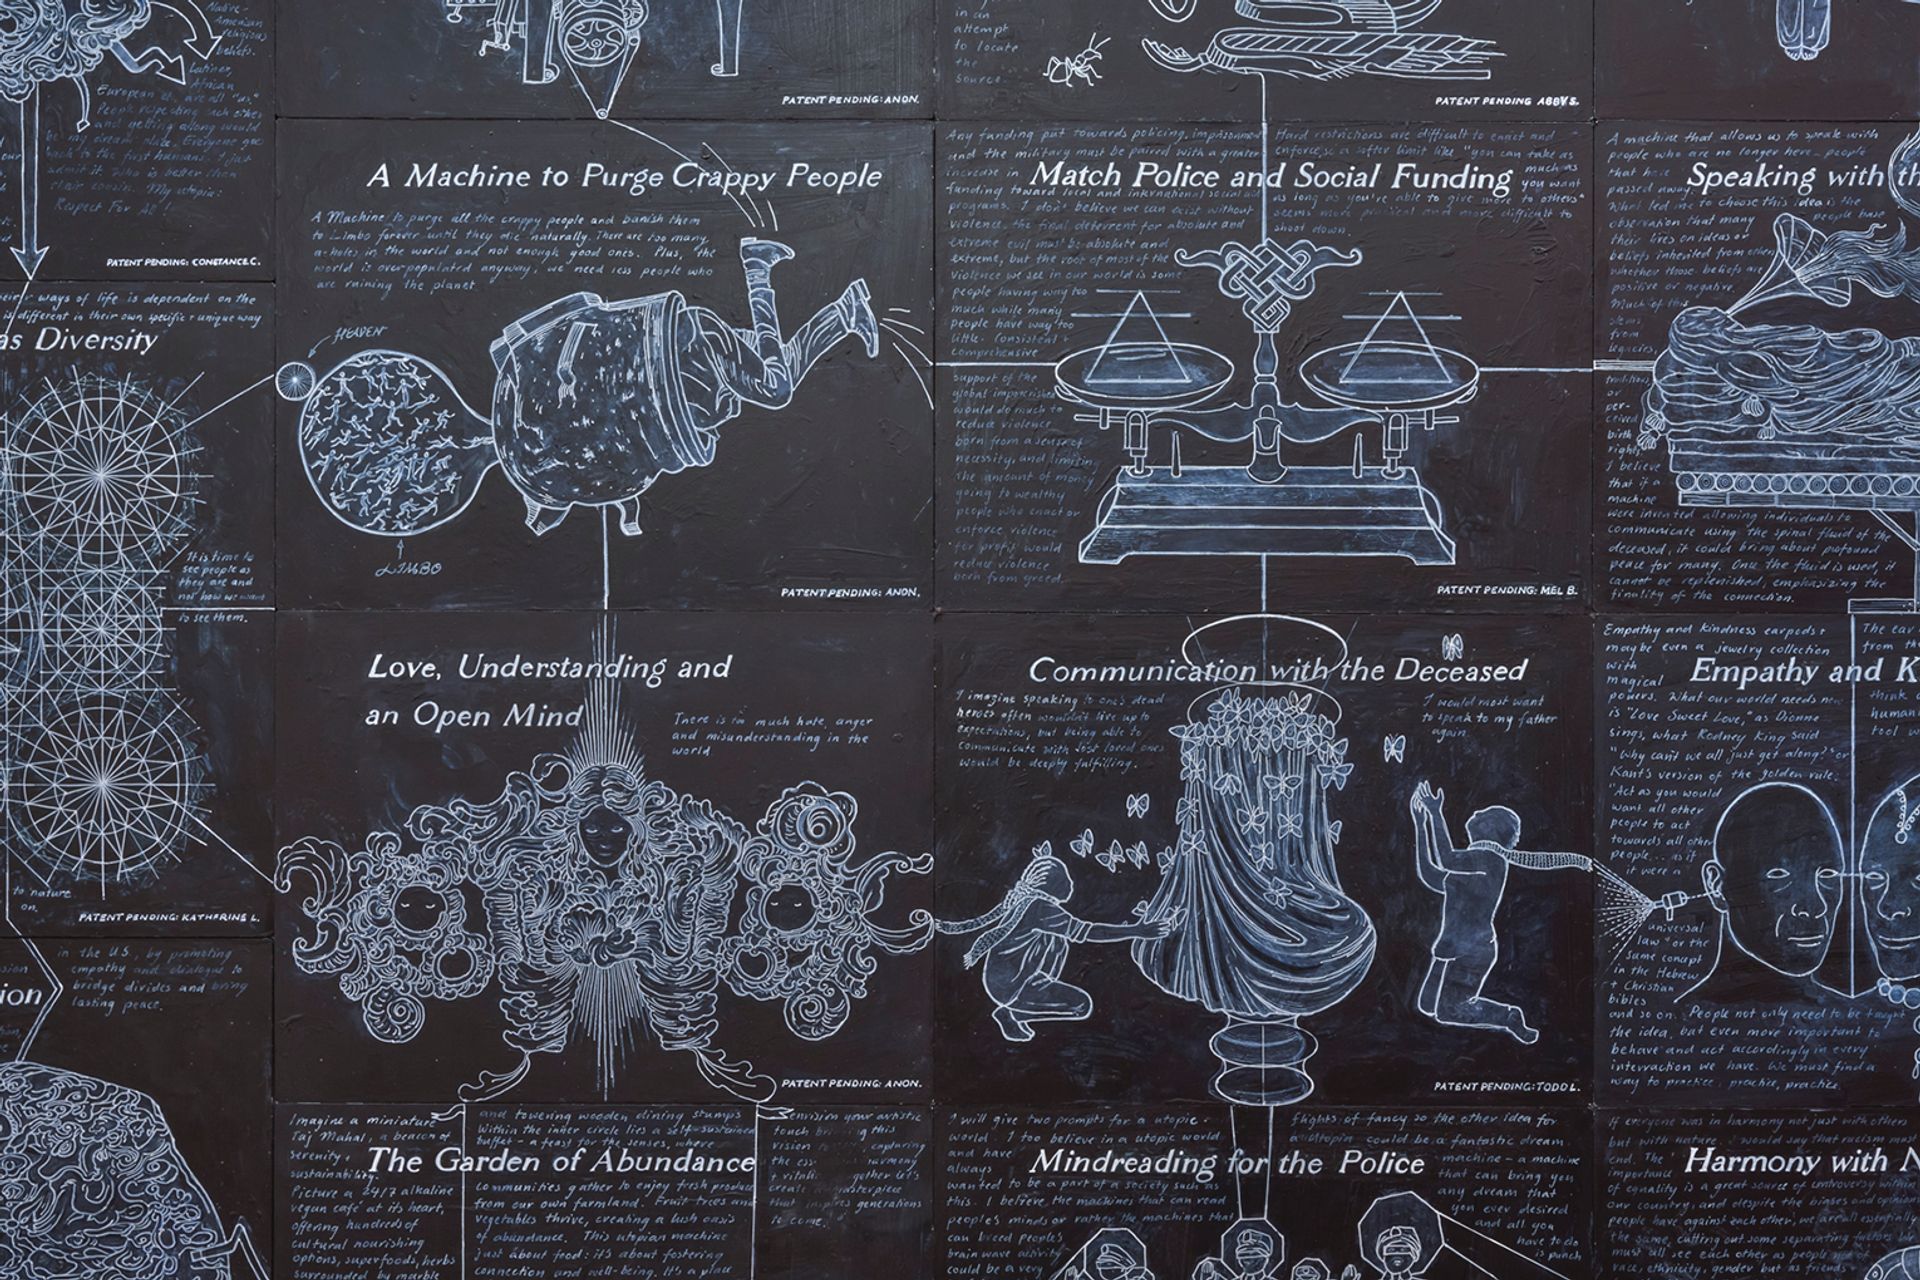 Native-
American
religious
beliefs.
Latinex,
African
European etc. are all "as"
People respecting each other
and getting along would
be my dream place. Everyone goes
back to the first humans. I just
admit it. Who is better than
their cousin. My utopia:
Respect For All!
PATENT PENDING: CONSTANCE C.
ways of life is dependent on the
is different in their own specific + unique way
as Diversity
It is time to
see people as
they are and
not how we want
to see them.
to nature
on.
PATENT PENDING: KATHERINE L.
in the U.S., by promoting
empathy and dialogue to
bridge divides and bring
lasting peace.
ion
PATENT PENDING: ANON.
A Machine to Purge Crappy People
A Machine to purge all the crappy people and banish them
to Limbo forever until they die naturally. There are too many
a-holes in the world and not enough good ones. Plus, the
world is overpopulated anyway, we need less people who
are ruining the planet
HEAVEN
LIMBO
PATENT PENDING: ANON.
Love, Understanding and
an Open Mind
There is too much hate, anger
and misunderstanding in the
world
PATENT PENDING: ANON.
Imagine a miniature
Taj Mahal, a beacon of
serenity &
sustainability.
Picture a 24/7 alkaline
vegan café at its heart,
offering hundreds of
cultural nourishing
options, superfoods, herbs
surrounded by marble
The Garden of Abundance
and towering wooden dining stumps
within the inner circle lies a self-sustained
buffet - a feast for the senses, where
communities gather to enjoy fresh produce
from our own farmland. Fruit trees and
vegetables thrive, creating a lush oasis
of abundance. This utopian machine
just about food: it's about fostering
connection and well-being. It's a place
envision your artistic
touch this
vision capturing
the harmony
gather let's
masterpiece
generations
to come.
in an
attempt
to locate
the
source.
PATENT PENDING ABBY S.
Any funding put towards policing, imprisonment
and the military must be paired with a greater
increase in
funding toward local and international social aid
programs. I don't believe we can exist without
violence, the final deterrent for absolute and
extreme evil must be absolute and
extreme, but the root of most of the
violence we see in our world is some
people having way too
much while many
people have way too
little. Consistent +
comprehensive
support of the
global impoverished
would do much to
reduce violence
born from a sense of
necessity, and limiting
the amount of money
going to wealthy
people who enact or
enforce violence
for profit would
reduce violence
born from greed.
Match Police and Social Funding
Hard restrictions are difficult to enact and
enforce, so a softer limit like "you can take as
much as
you want
as long as you're able to give more to others"
seems more practical and more difficult to
shoot down.
PATENT PENDING: MEL B.
Communication with the Deceased
I imagine speaking to one's dead
heroes often wouldn't live up to
expectations, but being able to
communicate with lost loved ones
would be deeply fulfilling.
I would most want
to speak to my father
again.
PATENT PENDING: TODD L.
I will give two prompts for a utopic
world. I too believe in a utopic world
and have
always
wanted to be a part of a society such as
this. I believe the machines that can read
people's minds or rather the machines that
can breed people's
brain wave activity
could be a very
Mindreading for the Police
flights of fancy so the other idea for
a utopia could be a fantastic dream
machine - a machine
that can bring you
any dream that
you ever desired
and all you
have to do
is punch
A machine that allows us to speak with
people who are no longer here - people
that have
passed away.
What led me to choose this idea is the
observation that many people base
their lives on ideas or
beliefs inherited from others
whether those beliefs are
positive or negative.
Much of this
stems
from
legacies,
traditions,
or
per-
ceived
birth
rights.
I believe
that if a
machine
were invented allowing individuals to
communicate using the spinal fluid of the
deceased, it could bring about profound
peace for many. Once the fluid is used, it
cannot be replenished, emphasizing the
finality of the connection.
Speaking with th
Empathy and kindness earpods +
maybe even a jewelry collection
with
magical
powers. What our world needs now
is "Love Sweet Love," as Dionne
sings, what Rodney King said
"Why can't we all just get along?" or
Kant's version of the golden rule:
"Act as you would
want all other
people to act
towards all other
people... as if
it were a
universal
law" or the
same concept
in the Hebrew
+ Christian
bibles
and so on. People not only need to be taught
the idea, but even more important to
behave and act accordingly in every
interraction we have. We must find a
way to practice, practice, practice.
Empathy and K
The ear
from th
think
human
tool w
If everyone was in harmony not just with others
but with nature. I would say that racism must
end. The
importance
of equality is a great source of controversy within
our country, and despite the biases and opinions
people have against each other, we are all essentially
the same, cutting out some separating factors
must all see each other as people not of
race, ethnicity, gender but as friends
Harmony with N